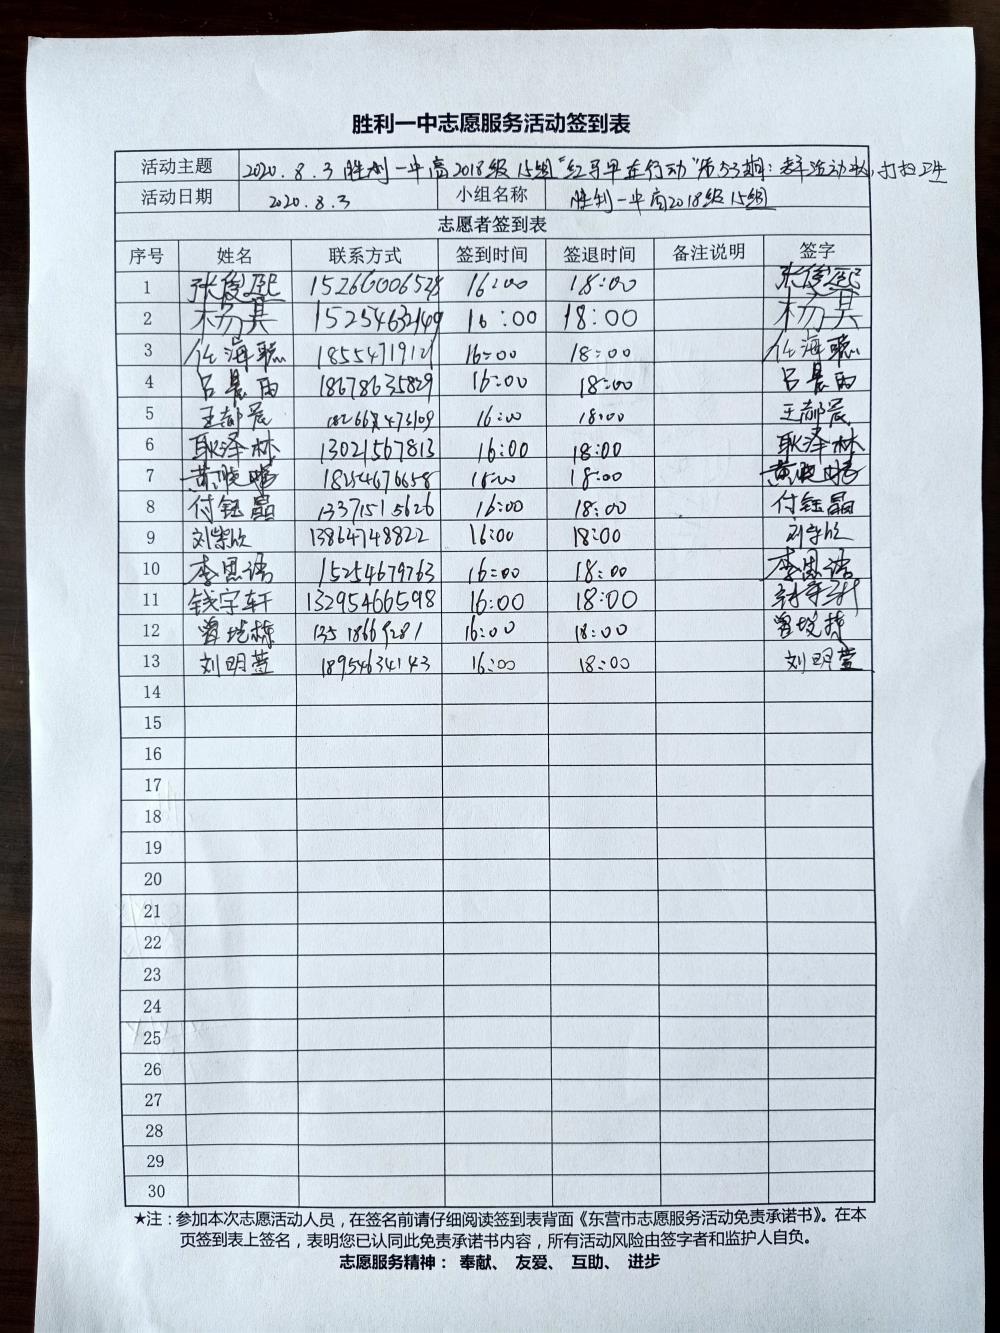 胜利一中志愿服务活动签到表
活动主题 2020.8.3胜利一中高2018级15组"红马甲在行动"第53期:老年活动中心,打扫卫生
活动日期 2020.8.3 小组名称 胜利一中高2018级15组
志愿者签到表
序号 姓名 联系方式 签到时间 签退时间 备注说明 签字
1 张俊熙 15266006528 16:00 18:00 张俊熙
2 杨昊 15254632149 16:00 18:00 杨昊
3 任海聪 1855471912 16:00 18:00 任海聪
4 吕晨雨 18678635829 16:00 18:00 吕晨雨
5 王郝晨 16:00 18:00 王郝晨
6 耿泽林 13021567813 16:00 18:00 耿泽林
7 黄晓晴 18254676658 16:00 18:00 黄晓晴
8 付钰晶 13371515626 16:00 18:00 付钰晶
9 刘紫欣 13864748822 16:00 18:00
10 李思语 15254679763 16:00 18:00 李思语
11 钱宇轩 13295466598 16:00 18:00
12 16:00 18:00
13 刘明萱 18954634143 16:00 18:00 刘明萱
14
15
16
17
18
19
20
21
22
23
24
25
26
27
28
29
30
★注:参加本次志愿活动人员,在签名前请仔细阅读签到表背面《东营市志愿服务活动免责承诺书》。在本
页签到表上签名,表明您已认同此免责承诺书内容,所有活动风险由签字者和监护人自负。
志愿服务精神: 奉献、 友爱、 互助、 进步